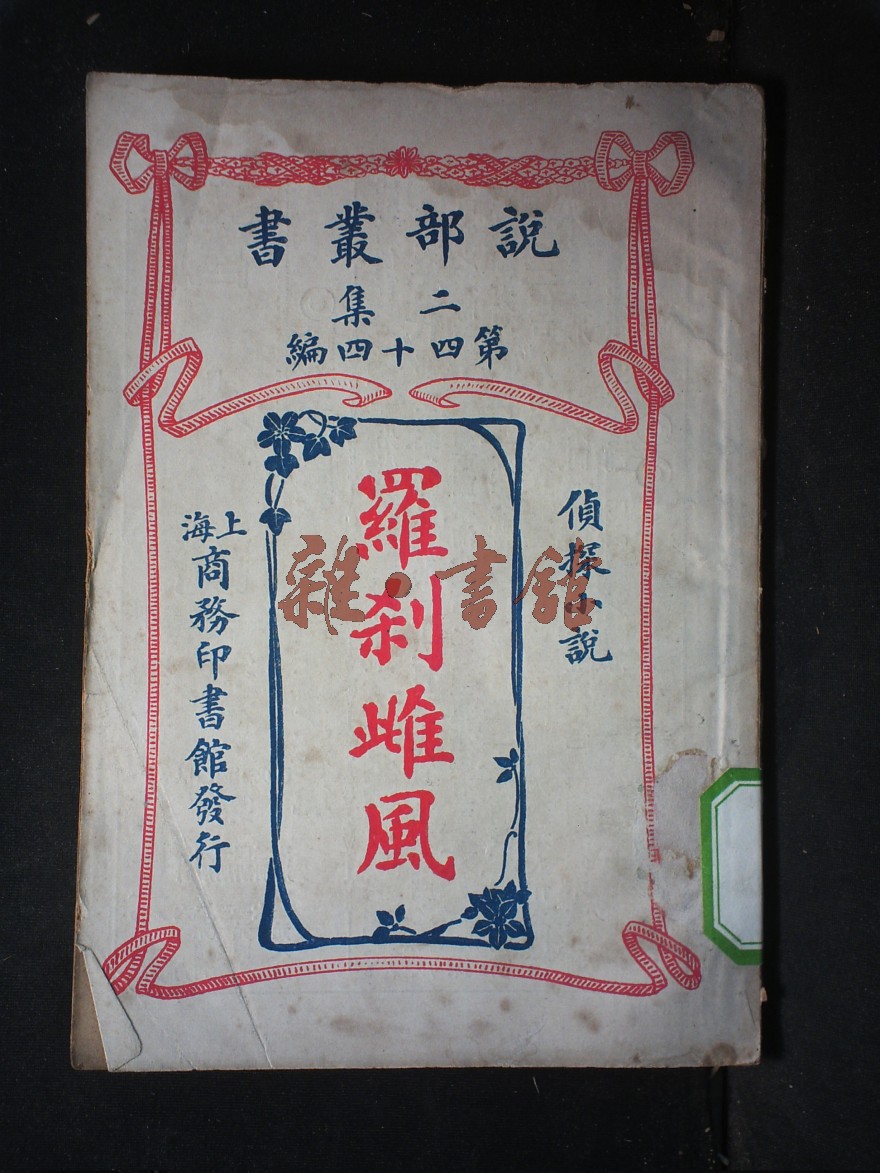 說部叢書
二集
第四十四編
偵探小說
羅刹雌風
上海
商務印書館發行
雜·書館